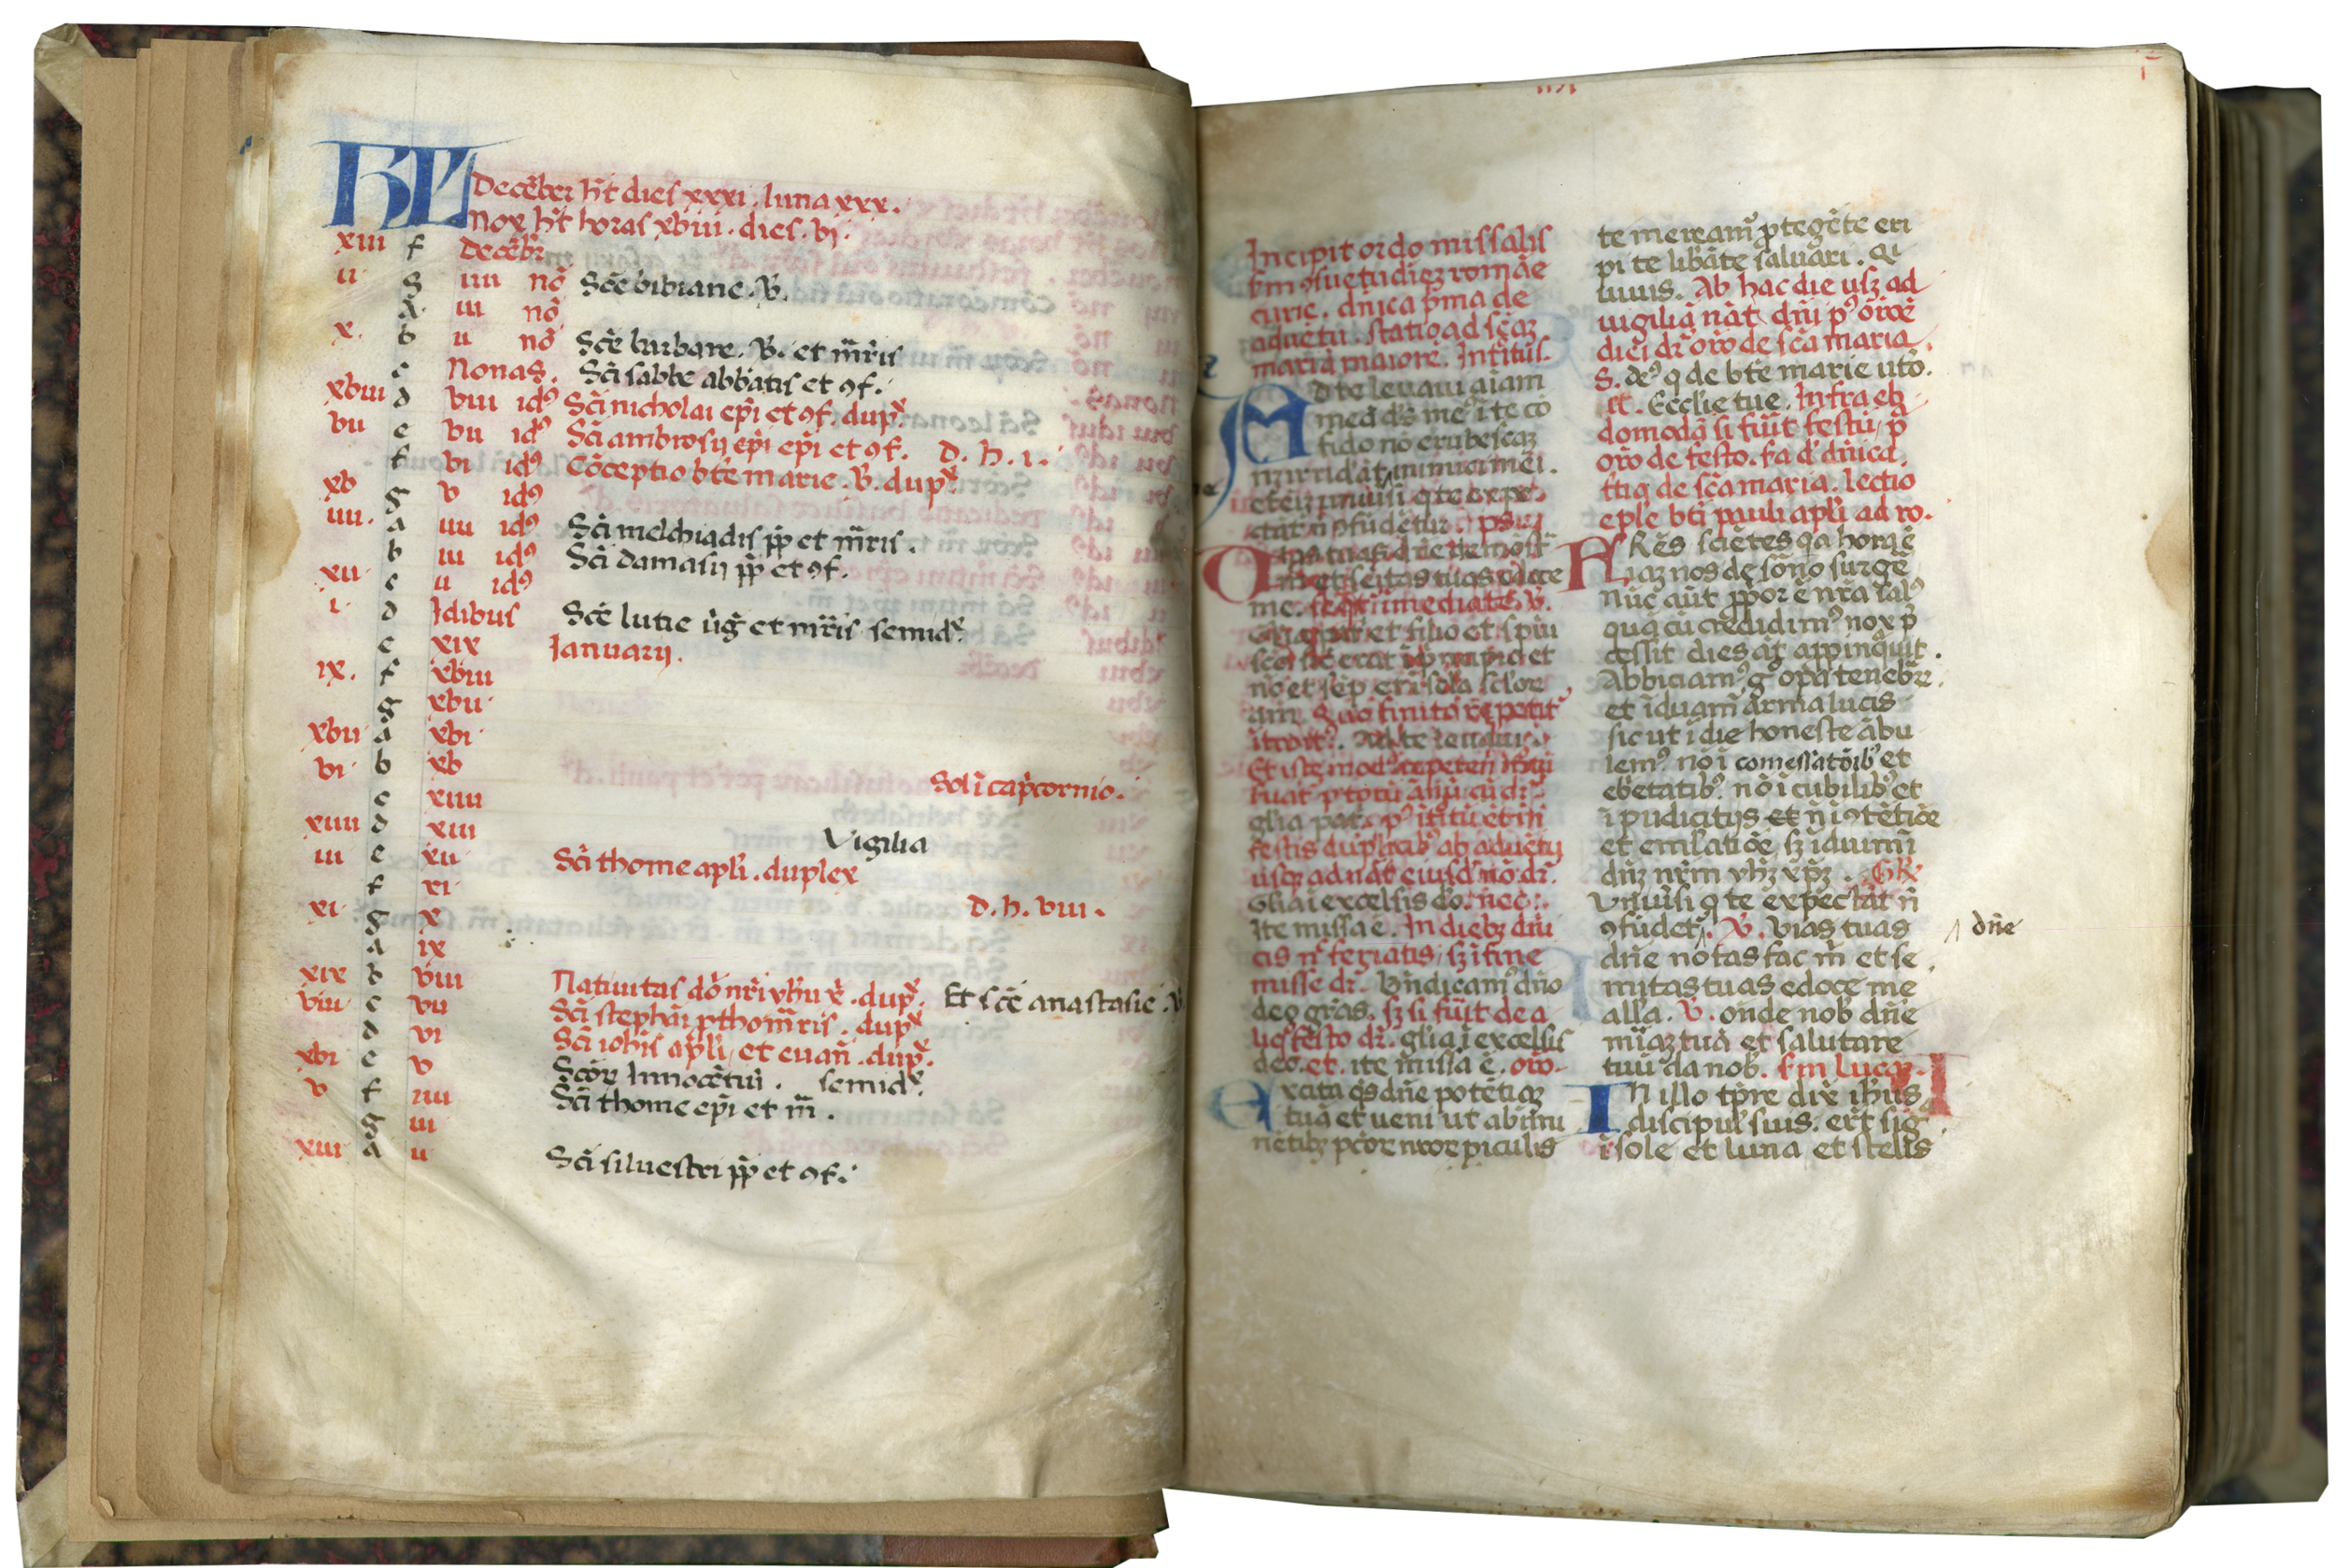 KL Decēber h̄t dies xxxi. luna xxx.
Nox h̄t horas xviii. dies. vi.
xiii f Decēbr̄
ii g iiii nō Scē bibiane. V̄.
A iii nō
x. b ii nō Scē barbare. V̄. et m̄ris
c Nonas. Sc̄i sabbe abbatis et ꝯf.
xviii d viii idꝰ Sc̄i nicholai ep̄i et ꝯf. dupˣ
vii e vii idꝰ Sc̄i ambrosij ep̄i ep̄i et ꝯf. D. h. i.
f vi idꝰ Cōceptio bt̄e marie. V̄. dupˣ
xv g v idꝰ
iiii. a iiii idꝰ Sc̄i melchiadis pp̄ et m̄ris.
b iii idꝰ Sc̄i damasij pp̄ et ꝯf.
xii c ii idꝰ
i. d Idibus Scē lucie v̄g et m̄ris semidˣ.
e xix Ianuarij.
ix. f xviii
g xvii
xvii a xvi
vi b xv Sol ī cap̄cornio.
c xiiii
xiiii d xiii Vigilia
iii e xii Sc̄i thome apl̄i. duplex
f xi
xi g x D. h. viii.
a ix
xix b viii Natiuitas dn̄i nr̄i yh̄u x̄. dupˣ. Et scē anastasie. V̄
viii c vii Sc̄i stephāi ꝓthom̄ris. dupˣ
d vi Sc̄i ioh̄is apl̄i, et euāñ. dupˣ.
xvi e v Scōꝝ Innocētiū. semidˣ.
v f iiii Sc̄i thome ep̄i et m̄.
g iii
xiii a ii Sc̄i siluestri pp̄ et ꝯf.
Incipit ordo missalis
ẜm ꝯsuetudīeꝫ romāe
curie. dn̄ica p̄ma de
aduētu. statio ad scāꝫ
mariā maiorē. Introitus.
Ad te leuaui aīam
meā ds̄ meꝰ ī te cō
fido nō erubescaꝫ
neqꝫ irrideāt inimici mei.
etenī uniuersi q te expe
ctāt n̄ ꝯfūdētur. ps̄
Uias tuas dn̄e demōst̄
m̄ et semitas tuas edoce
me. sequit̄ īmediate. V̄.
Gl̄a pr̄i et filio et spū
scō sic̄ erat ī pncipio et
nc̄ et sēp et ī scl̄a scl̄oꝝ
am̄. quo finito repetit̄
ītroitꝰ. Ad te leuaui.
Et iste modꝰ repetēdi ītroitū
ẜuat̄ p totū ānū cū dr̄
gl̄ia pat̄. pꝰ ītroitū etiā ī
festis duplicibꝰ ab aduētu
usqꝫ ad nat̄ eiusd̄ nō dr̄.
Gl̄ia ī excelsis dō. nec.
Ite missa ē. In diebꝫ dn̄i
cis ⁊ feriatis, sꝫ ī fine
misse dr̄. Bn̄dicamꝰ dn̄o
deo gr̄as. sꝫ si fūit de a
liq̄ festo dr̄. gl̄ia ī excelsis
deo. et. ite missa ē. oro.
Excita qs̄ dn̄e potētiaꝫ
tuā et ueni ut ab īmi
nētibꝫ pctōꝝ nr̄oꝝ piculis
te mereamꝰ ꝓtegēte eri
pi te libāte saluari. Qi
uiuis. Ab hac die usqꝫ ad
uigiliā nāt dn̄i pꝰ orōē
diei dr̄ oro de scā maria.
S. deꝰ q de bt̄e marie utō.
Et. Ecclīe tue. Infra eb
domodā si fūit festū, p̄
orō de festo. scd̄a d̄ dn̄ica.
ttia de scā maria. lectio
eplē bt̄i pauli apl̄i ad ro.
Frēs sciētes qa hora ē
iāꝫ nos de sōno surgē
Nūc aūt ꝓpior ē nr̄a salꝰ
quā cū credidimꝰ. nox p̄
cessit dies āt appinquit.
Abiciamꝰ g̊ opa tenebrꝝ
et īduam̄ arma lucis
sic ut ī die honeste ābu
lemꝰ. nō ī comessatōibꝰ et
ebetatibꝰ. nō ī cubilibꝰ et
īpudicitijs et n̄ ī ꝯtētiōe
et emulatiōe, sꝫ īduimī
dn̄ꝫ nr̄m yh̄ꝫ xp̄ꝫ. Gr̄.
Vniuersi q te expectāt n̄
ꝯfūdet̄. V̄. Vias tuas dn̄e
dn̄e notas fac m̄ et se
mitas tuas edoce me
all̄a. V̄. Ostende nob̄ dn̄e
mīaꝫ tuā et salutare
tuū da nob̄. ẜm Lucaꝫ.
In illo tp̄re dix̄ ih̄us
discipul̄ suis. er̄t siḡ
ī sole et luna et stellis